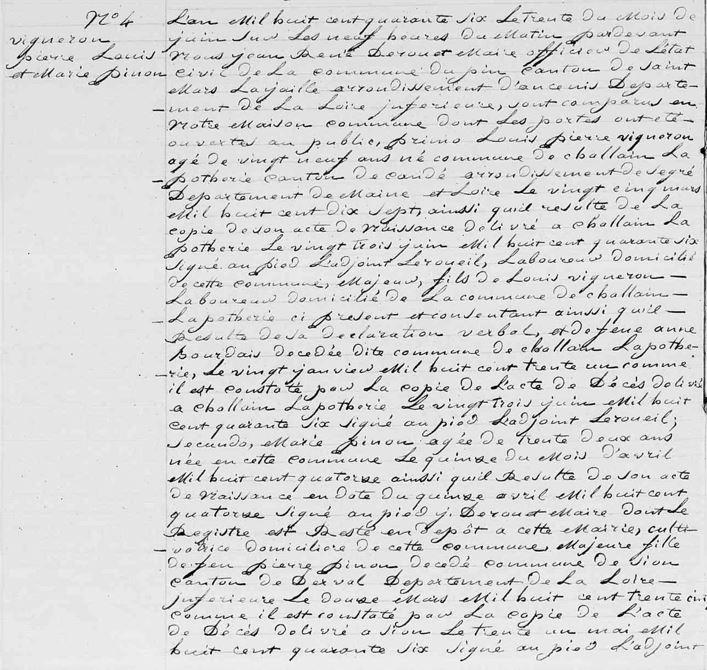 N° 4
vigneron
pierre Louis
et Marie pinon
L'an Mil huit cent quarante six Le trente du Mois de
juin sur Les neuf heures du Matin pardevant
Nous jean René Derouet Maire officier de L'état
civil de La commune du pin canton de saint
Mars Lajaille arrondissement d'ancenis Departe-
ment de La Loire inferieure, sont comparus en
Notre Maison commune dont Les portes ont été
ouvertes au public, primo Louis pierre vigneron
agé de vingt neuf ans né commune de challain La
potherie canton de candé arrondissement de segré
Departement de Maine et Loire Le vingt cinq mars
Mil huit cent dix sept, ainsi quil resulte de La
copie de son acte de Naissance délivré a challain La
potherie Le vingt trois juin Mil huit cent quarante six
signé au pied L'adjoint Leroueil, Laboureur domicilié
de cette commune, Majeur, fils de Louis vigneron —
Laboureur domicilié de La commune de challain —
La potherie ci present et consentant ainsi quil —
Resulte de sa declaration verbal, et de fene anne
Bourdais decedée dite commune de challain Lapothe-
rie, Le vingt janvier Mil huit cent trente un comme
il est constaté par La copie de L'acte de Décès delivré
a challain Lapotherie Le vingt trois juin Mil huit
cent quarante six signé au pied L'adjoint Leroueil;
secundo, Marie pinon agée de trente deux ans
née en cette commune Le quinze du Mois d'avril
Mil huit cent quatorze ainssi quil Resulte de son acte
de Naissance en date du quinze avril Mil huit cent
quatorze signé au pied j. Derouet Maire dont Le
Registre est Resté en depôt a cette Mairie, culti-
vatrice domiciliere de cette commune, Majeure fille
de feu pierre pinon decedé commune de sion
canton de Derval Departement de La Loire —
inferieure Le douze Mars Mil huit cent trente cinq
comme il est constaté par La copie de L'acte
de Décès delivré a sion Le trente un mai Mil
huit cent quarante six signé au pied L'adjoint